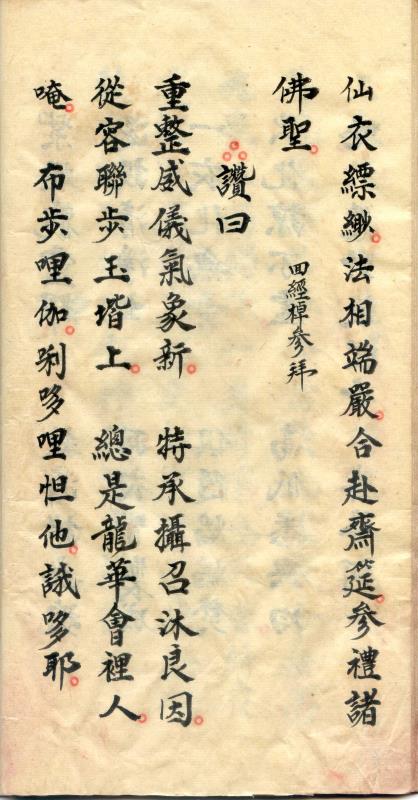 仙衣縹緲。法相端嚴。合赴齋筵。參禮諸
佛聖。 回經棹參拜
讚曰
重整威儀氣象新。 特承攝召沐良因。
從容聯步玉堦上。 總是龍華會裡人。
唵。 布步哩伽唎哆哩怛他。誐哆耶。